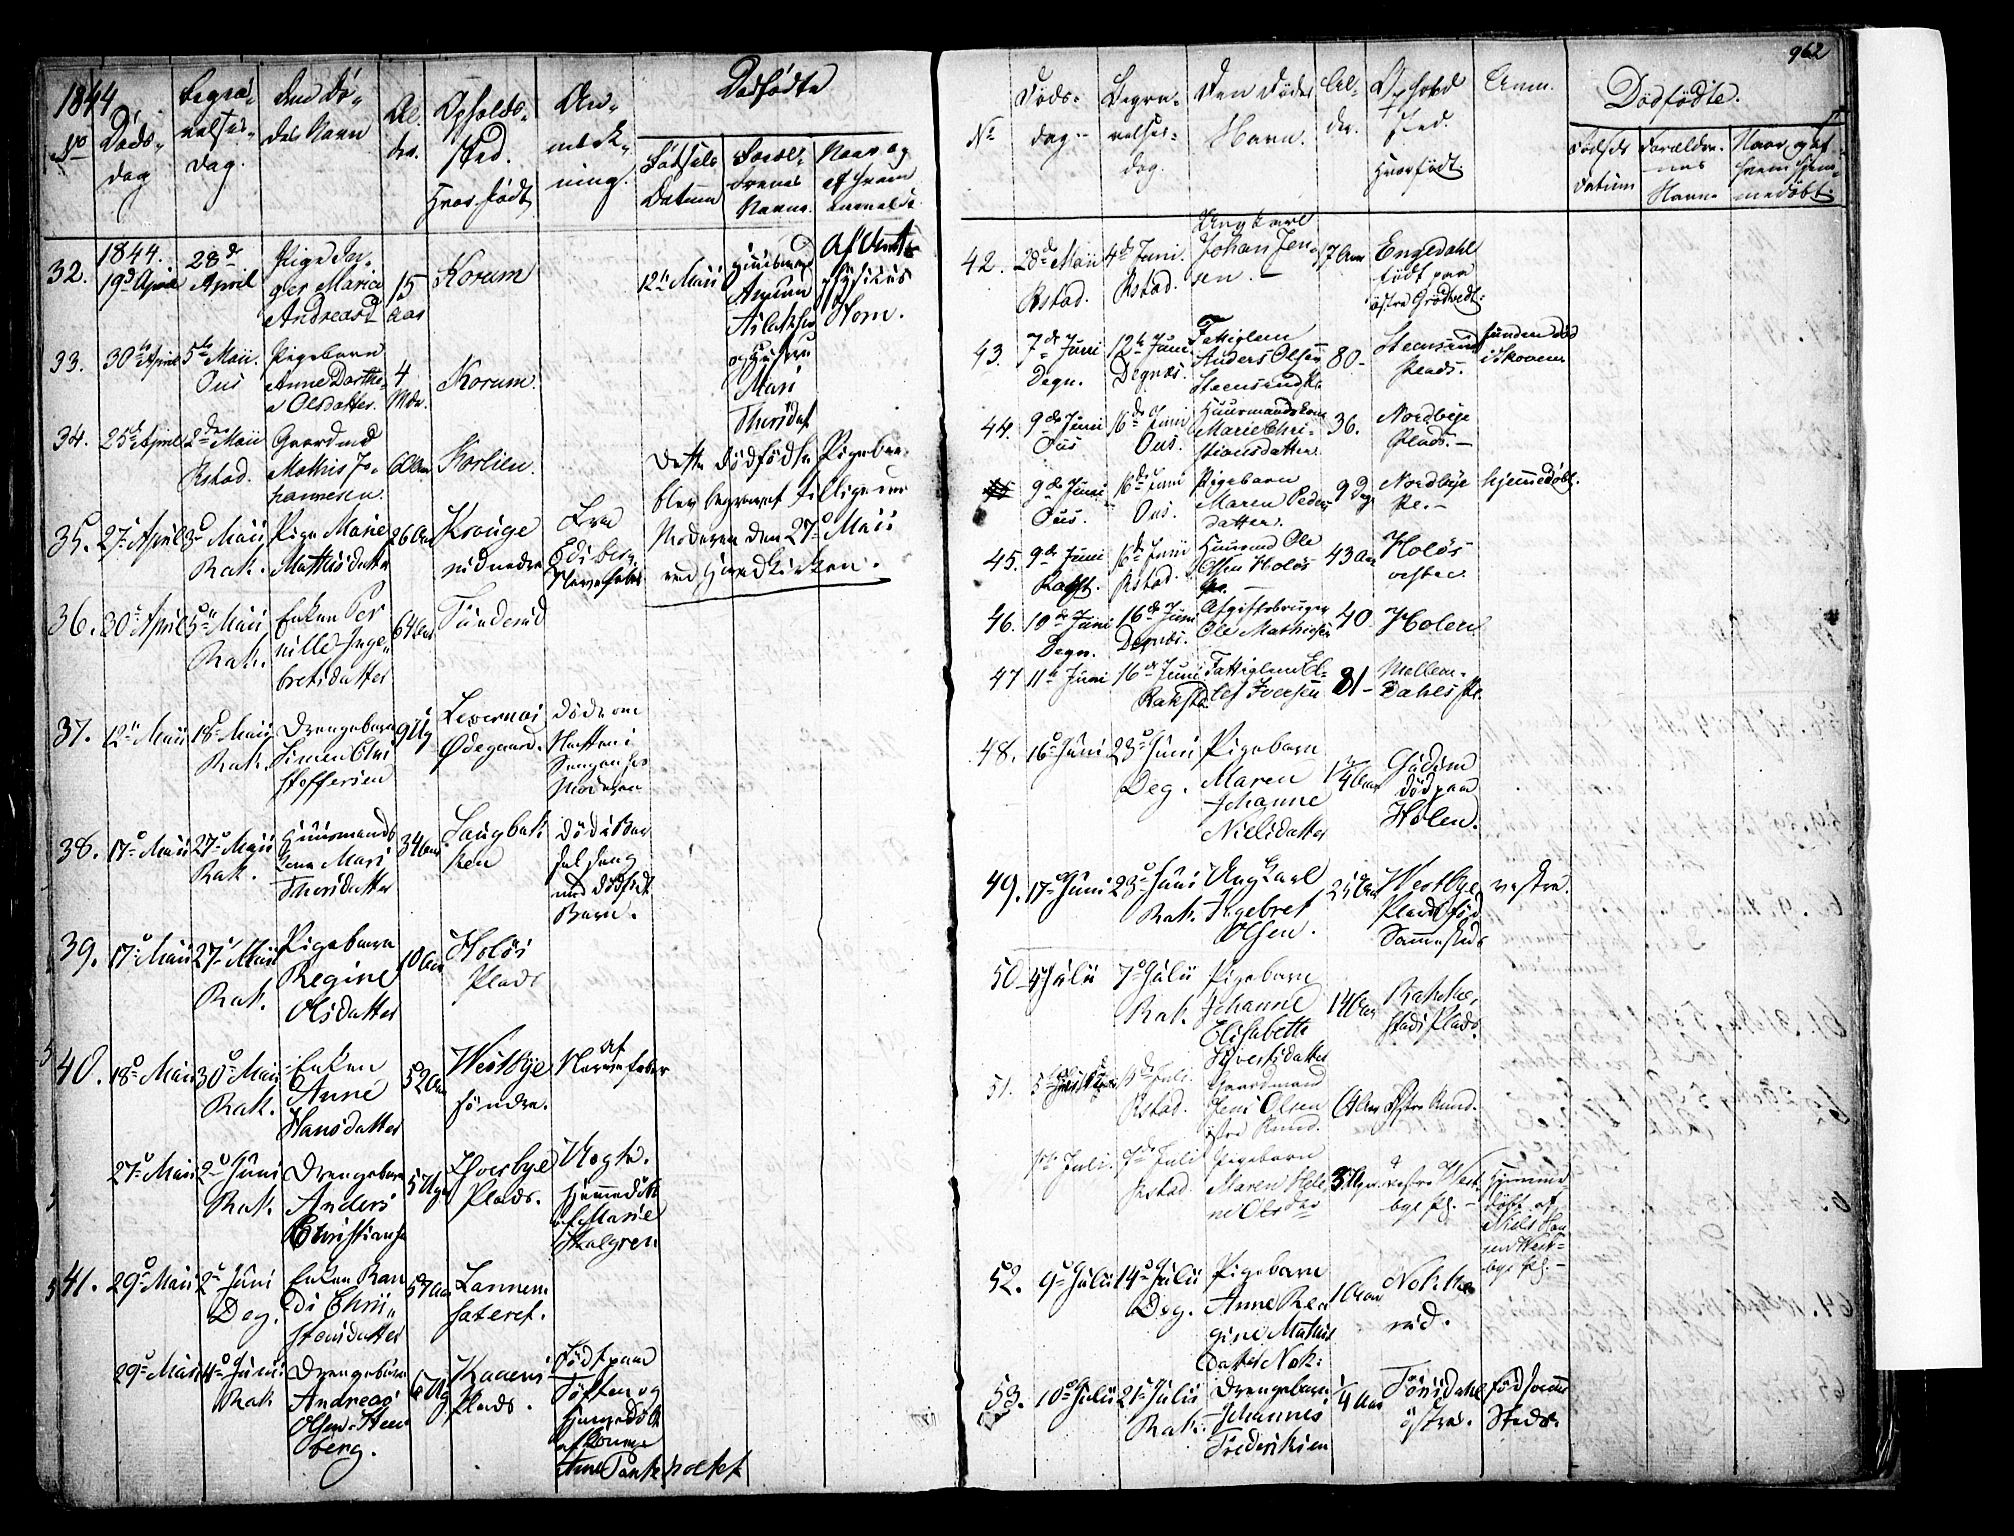 1844
No
Døds-
dag
Begra-
velses-
dag.
den Dø-
des Navn
Al-
der.
Opholds-
sted.
Hvor født
An-
mærk-
ning.
Dødfødte
Fødsels
Datum
Foræl-
drenes
Navne
Naar og
af hvem
anmeldt
1844.
32. 19d April 28d April Pige In-
ger Maria
Andreasd 15 Aar Korum
12te Maii Huusmand
Amund
Aslaksen
og Hustru
Mari
Thorsdat
Af Amts
Physicus
Horn.
33. 30te April 5te Maii Ous Pigebarn
Anne Dorthe-
a Olsdatter. 4 Mdr. Korum.
34. 25de April 2den Maii Rstad. Gaardmd
Mathis Jo-
hannesen 60 Aar Korlien.
Dette Dødfødte Pigebarn
blev begravet tillige med
Moderen den 27de Maii
ved Hovedkirken.
35. 27 April 3d Maii Rak. Pige Marie
Mathisdatter 26 Aar Krouge
nedre Fra
Edsberg
Nervefeber
36. 30te April 5te Maii Rak. Enken Per
nille Inge-
bretsdatter 64 Aar Tunderud
37. 12te Maii 18de Maii Rak. Drengebarn
Simen Chri
stoffersen 9 Ug Levernæs
Ødegaard. døde om
Natten i
Sengen hos
Moderen
38. 17de Maii 27de Maii Rak. Huusmands
kone Mari
Thorsdatter 34 Aar Langbak
ken Død i Bar
selseng
med dødfødt
Barn.
39. 17de Maii 27de Maii Rak. Pigebarn
Regine
Olsdatter 10 Aar Holøs
Plads
40. 18de Maii 30de Maii Rak. Enken
Anne
Hansdatter 52 Aar Westbye
søndre. af
Nervefeber
27de Maii 2den Juni Rak. Drengebarn
Anders
Christiansen 5 Uger Huerbye
Plads. Uægte.
Hjemmedøbt
af Marie
Skalgren
41. 29de Maii 2den Juni Deg. Enken Ran
di Chri-
stensdatter 57 Aar Lannem
sæteret.
29de Maii 4de Juni Rak Drengebarn
Andreas
Olsen Steen
berg. 6 Ug Kaaens
Plads. Født paa
Toften og
Hjemmedøbt
af
Anne
962
No
Døds-
dag.
Begra-
velses-
dag.
Den Dødes
Navn.
Al-
der.
Ophold
sted.
Hvor født.
Anm.
Dødfødte.
Fødsels
datum
Forældre-
nes
Navne
Naar og af
hvem hjem-
medøbt.
42. 28de Maii Rstad. 4de Juni. Rstad. Ungkarl
Johan Jen-
sen. 17 Aar Engedahl
født paa
østre Grødvedt.
43. 7de Juni Degn. 12te Juni Degnæs. Fattiglem
Anders Olsen
Steensrud Pl. 80 Steensrud
Plads. funden død
i Skoven
44. 9de Juni Ous 16de Juni Ous. Huusmandskone
Marie Chri-
stiansdatter. 36. Nordbye
Plads.
9de Juni Ous. 16de Juni Ous. Pigebarn
Maren Peders
datter. 9 Dg Nordbye
Pl. hjemmedøbt.
45. 9de Juni Rakst. 16de Juni Rstad. Huusmd Ole
Olsen Holøs 43 Aar Holøs
vestre
46. 10de Juni Degn. 16de Juni Degnæs. Afgiftsbruger
Ole Mathiesen 40. Holen
47 11te Juni 16de Juni Rakstd. Fattiglem El-
lef Iversen 81 Mellem-
Dahls Pl.
48. 16de Juni 23de Juni Deg. Pigebarn
Maren
Johanne
Nielsdatter 1 1/4 Aar
død paa
Holen.
49. 17de Juni 23de Juni Rak. Ungkarl
Ingebret
Olsen. 25 Aar Westbye
Plads fød
Sammesteds vestre.
50 4 Julii 7de Julii Rak. Pigebarn
Johanne
Elisabeth
Syvertsdatter 14 Aar Rakke-
stads Plads.
51. 5de Juli Rstad. Gaardmand
Jens Olsen
østre Rund. 64 Aar Østre Rund.
Juli. 7de Juli Rstad Pigebarn
Maren Hele
ne Olsdtr 3 Uger vestre West-
bye Pl. Hjemme-
døbt af
Niels Han
sen West-
bye Pl.
52. 9de Julii 14de Julii Deg. Pigebarn
Anne Re-
gine Mathis
datter Nok- 1 Aar Nokke
rud.
53. 10de Julii 21de Julii Rak. Drengebarn
Johannes
Frederiksen 1/4 Aar Tørisdahl
østre. Fød samme
Steds.